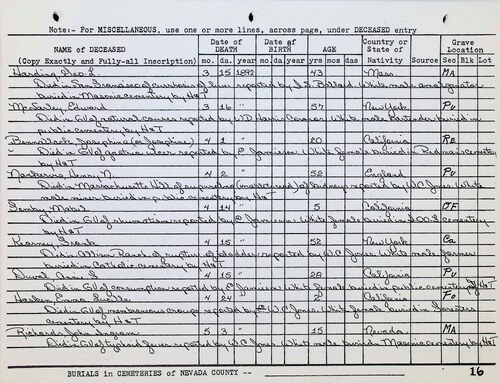 Note:- For MISCELLANEOUS, use one or more lines, across page, under DECEASED entry
NAME of DECEASED (Copy Exactly and Fully-all Inscription) Date of DEATH mo. da. year Date of BIRTH mo. da. year AGE yrs mos das Country or State of Nativity Source Grave Location Sec Blk Lot
Harding, Geo. L. 3 15 1892 43 Mass. MA
Died in San Francisco of of liver reported by Ballard. White male
buried in Masonic cemetery by H&T
Edward 3 16 " 57 New York Pu
Died in GV of natural causes reported by WD Harris Coroner White male buried in
public cemetery by H&T
Josephine (or Josephine) 4 1 " 20 California RE
Died in GV of reported by Jamieson White female buried in cemetery
by H&T
Henry N. 4 2 " 52 England Pu
Died in Massachusetts Hill of of kidney reported by WC Jones White
male miner buried in public cemetery by H&T
Mabel 4 14 " 5 California OF
Died in GV of rheumatism reported by Jamieson White female buried IOOF cemetery
by H&T
Kearney, Frank 4 15 " 52 New York Ca
Died in Ranch of rupture of bladder reported by WC Jones White male farmer
buried in Catholic cemetery by H&T
Duval, 4 15 " 28 California Pu
Died in GV of consumption reported by Jamieson White female buried in public cemetery by H&T
Emma Luella 4 24 " 2 California Fo
Died in GV of membranous croup reported by WC Jones White female buried in Foresters
cemetery by H&T
Richards, John Ingram 5 3 " 15 Nevada MA
Died in GV of typhoid fever reported by WC Jones White male buried Masonic cemetery by H&T
BURIALS in CEMETERIES of NEVADA COUNTY -- 16